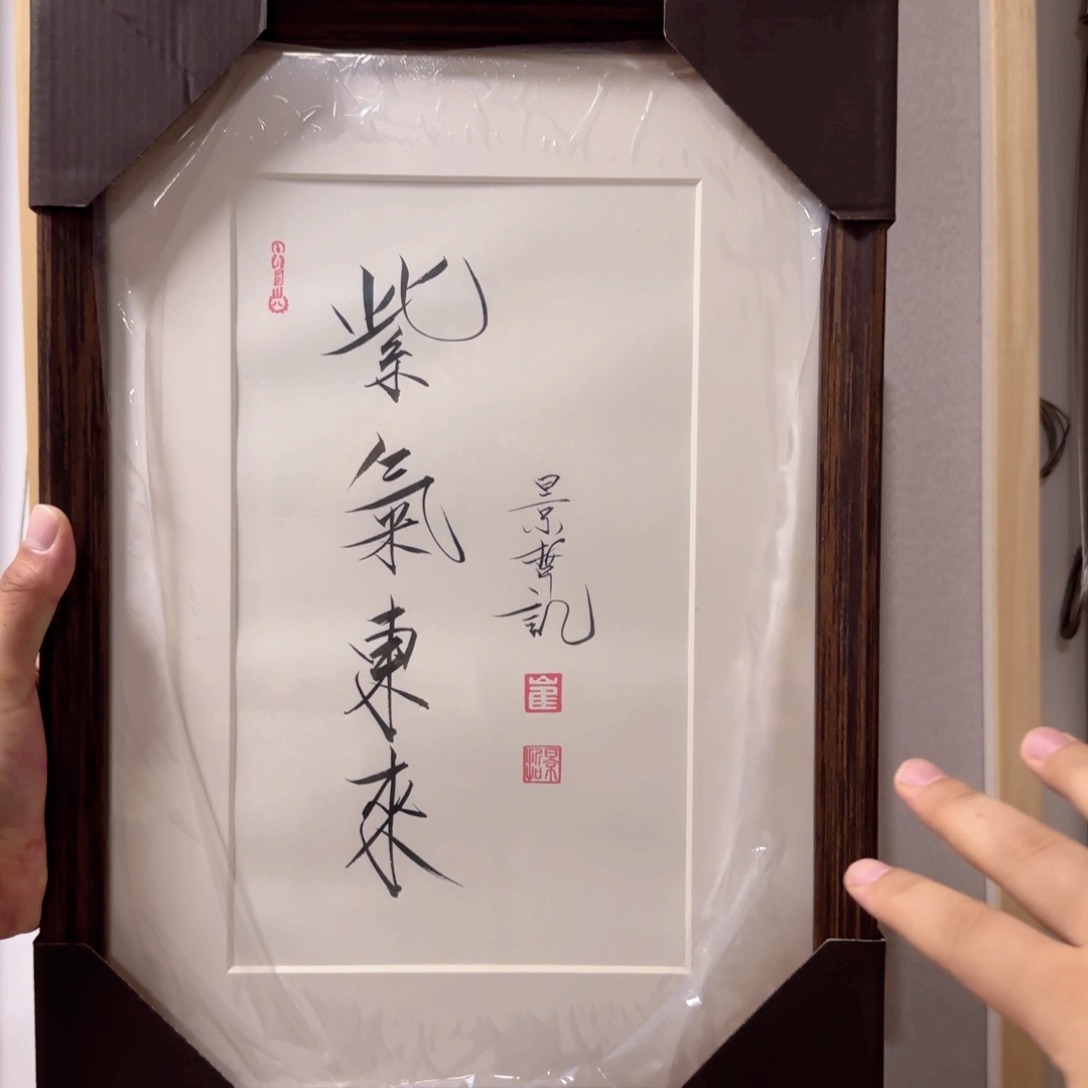 紫氣東來
景哲記
崔